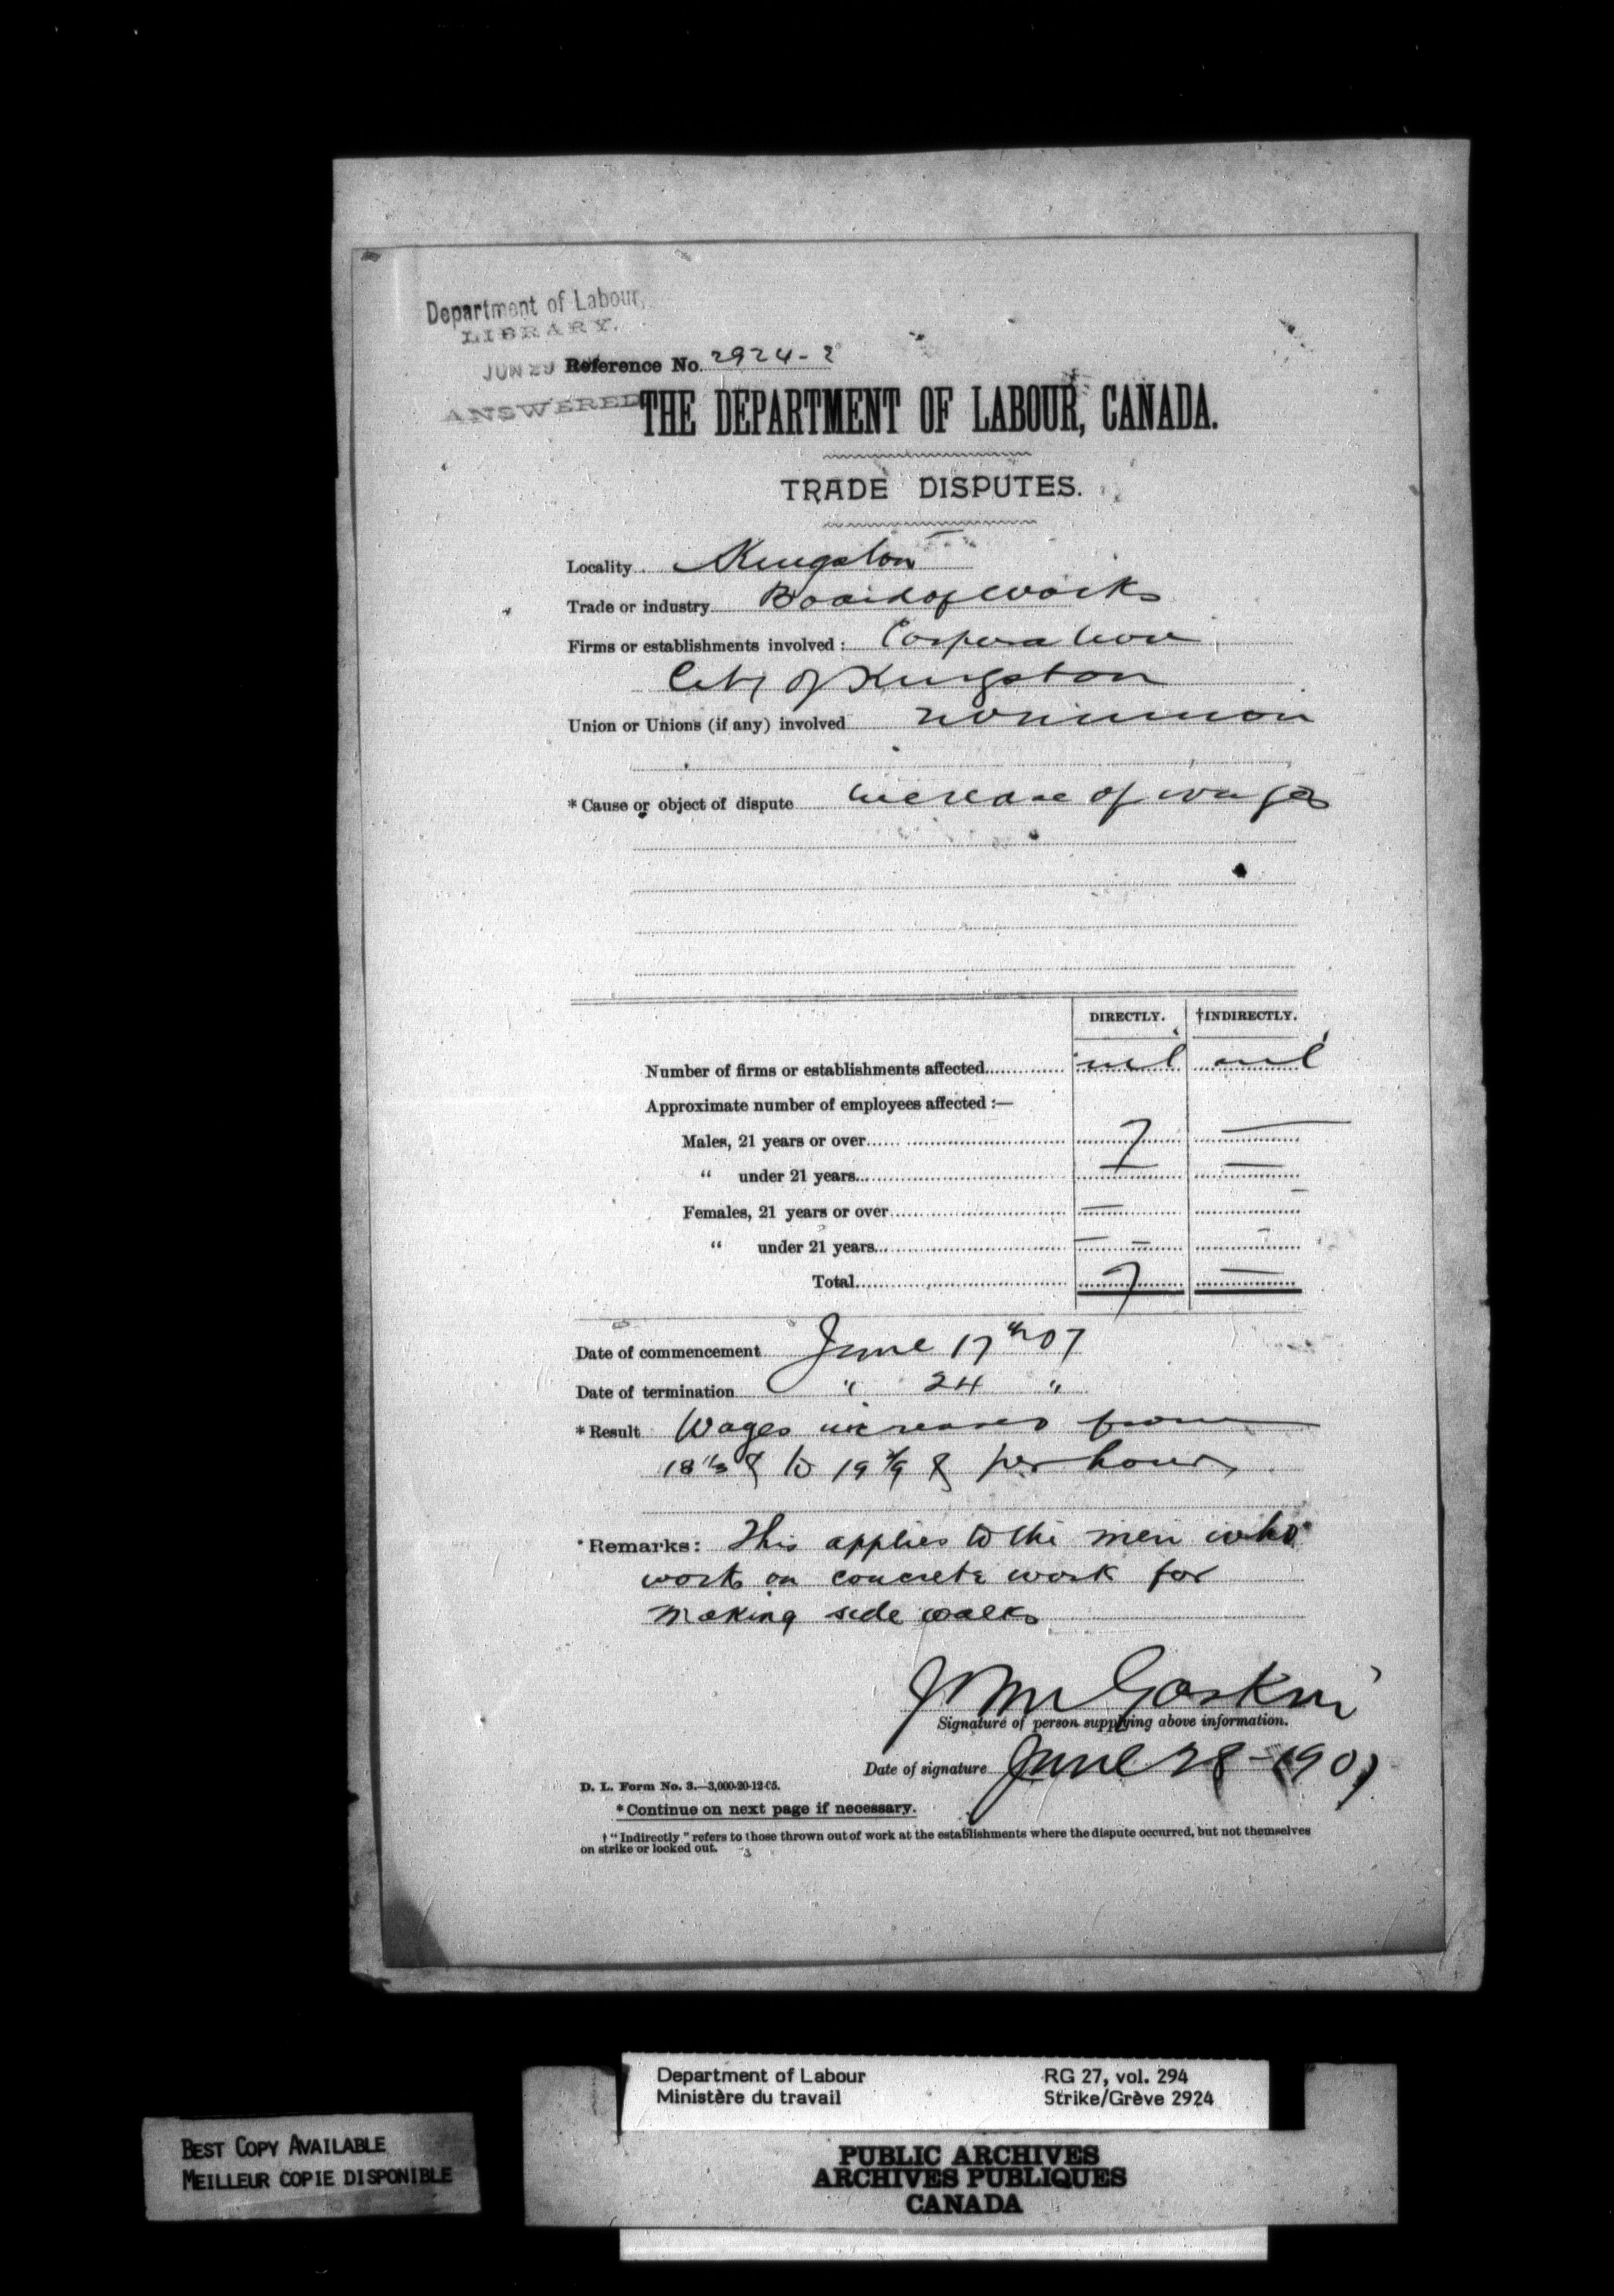 Department of Labour,
LIBRARY.
JUN 29
Reference No. 2924-2
ANSWERED
THE DEPARTMENT OF LABOUR, CANADA.
TRADE DISPUTES.
Locality Kingston
Trade or industry Board of Works
Firms or establishments involved: Corporation
City of Kingston
Union or Unions (if any) involved nonunion
* Cause or object of dispute increase of wages
DIRECTLY. †INDIRECTLY.
Number of firms or establishments affected nil nil
Approximate number of employees affected :—
Males, 21 years or over 7 —
" under 21 years — —
Females, 21 years or over — —
" under 21 years — — —
Total 7 —
Date of commencement June 17th 07
Date of termination " 24 "
* Result Wages increased from
18 1/3 ¢ to 19 4/9 ¢ per hour,
* Remarks: This applies to the men who
work on concrete work for
making side walks
John Gaskin
Signature of person supplying above information.
Date of signature June 28 - 1907
D. L. Form No. 3.—3,000-20-12-05.
* Continue on next page if necessary.
† " Indirectly " refers to those thrown out of work at the establishments where the dispute occurred, but not themselves
on strike or locked out.
Department of Labour RG 27, vol. 294
Ministère du travail Strike/Grève 2924
BEST COPY AVAILABLE
MEILLEUR COPIE DISPONIBLE
PUBLIC ARCHIVES
ARCHIVES PUBLIQUES
CANADA